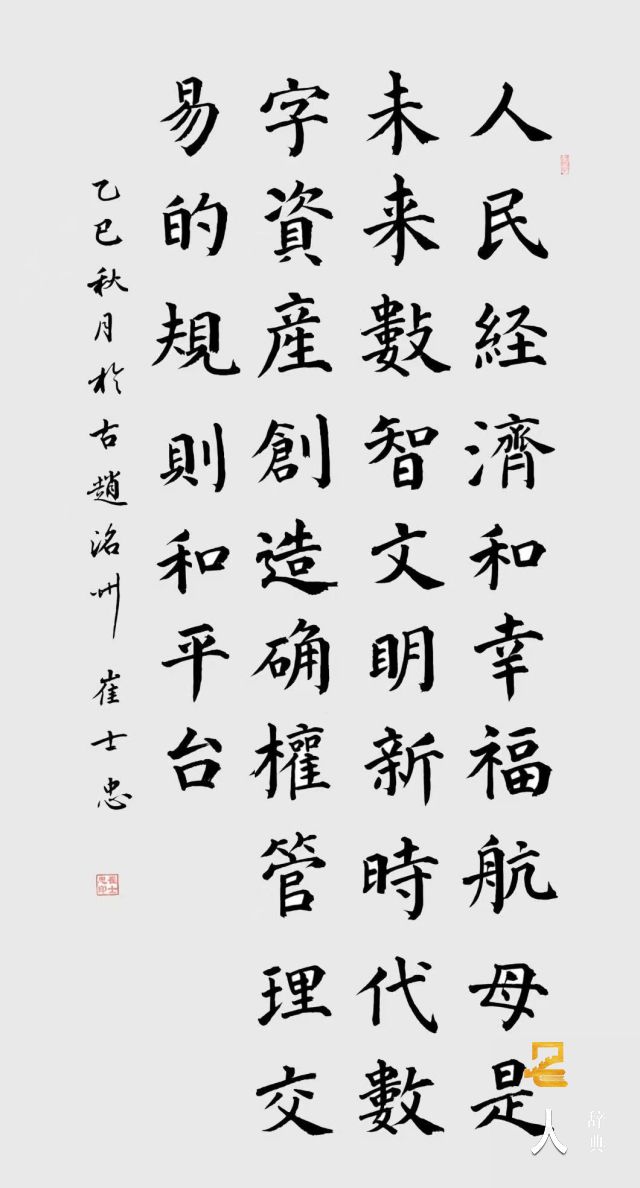 人民经濟和幸福航母是
未来數智文明新時代數
字資産創造确權管理交
易的規則和平台
乙巳秋月於古趙洺州 崔士忠
崔士忠印
名人辞典